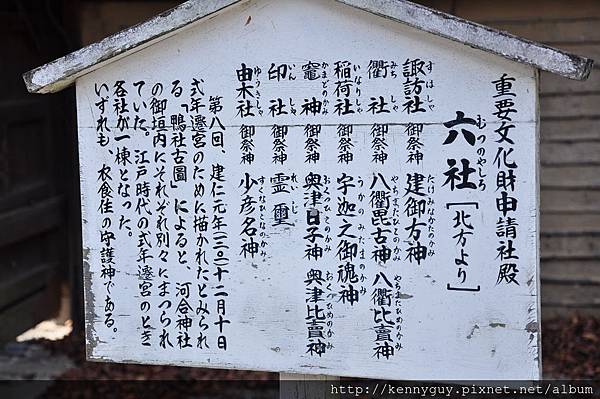 重要文化財申請社殿
六社［北方より］
むつのやしろ
諏訪社 御祭神 建御方神
すはしゃ たけみなかたのかみ
衢社 御祭神 八衢毘古神 八衢比賣神
みちしゃ やちまたひこのかみ やちまたひめのかみ
稲荷社 御祭神 宇迦之御魂神
いなりしゃ うかのみたまのかみ
竈神 御祭神 奥津日子神 奥津比賣神
かまどのかみ おくつひこのかみ おくつひめのかみ
印社 御祭神 霊璽
いんしゃ れいじ
由木社 御祭神 少彦名神
ゆうきしゃ すくなひこなのかみ
第八回、建仁元年(一二〇一)十二月十日
式年遷宮のために描かれたとみられ
る「鴨社古図」によると、河合神社
の御垣内にそれぞれ別々にまつられ
ていた。江戸時代の式年遷宮のとき
各社が一棟となった。
いずれも、衣食住の守護神である。
http://kennyguy.pixnet.net/album